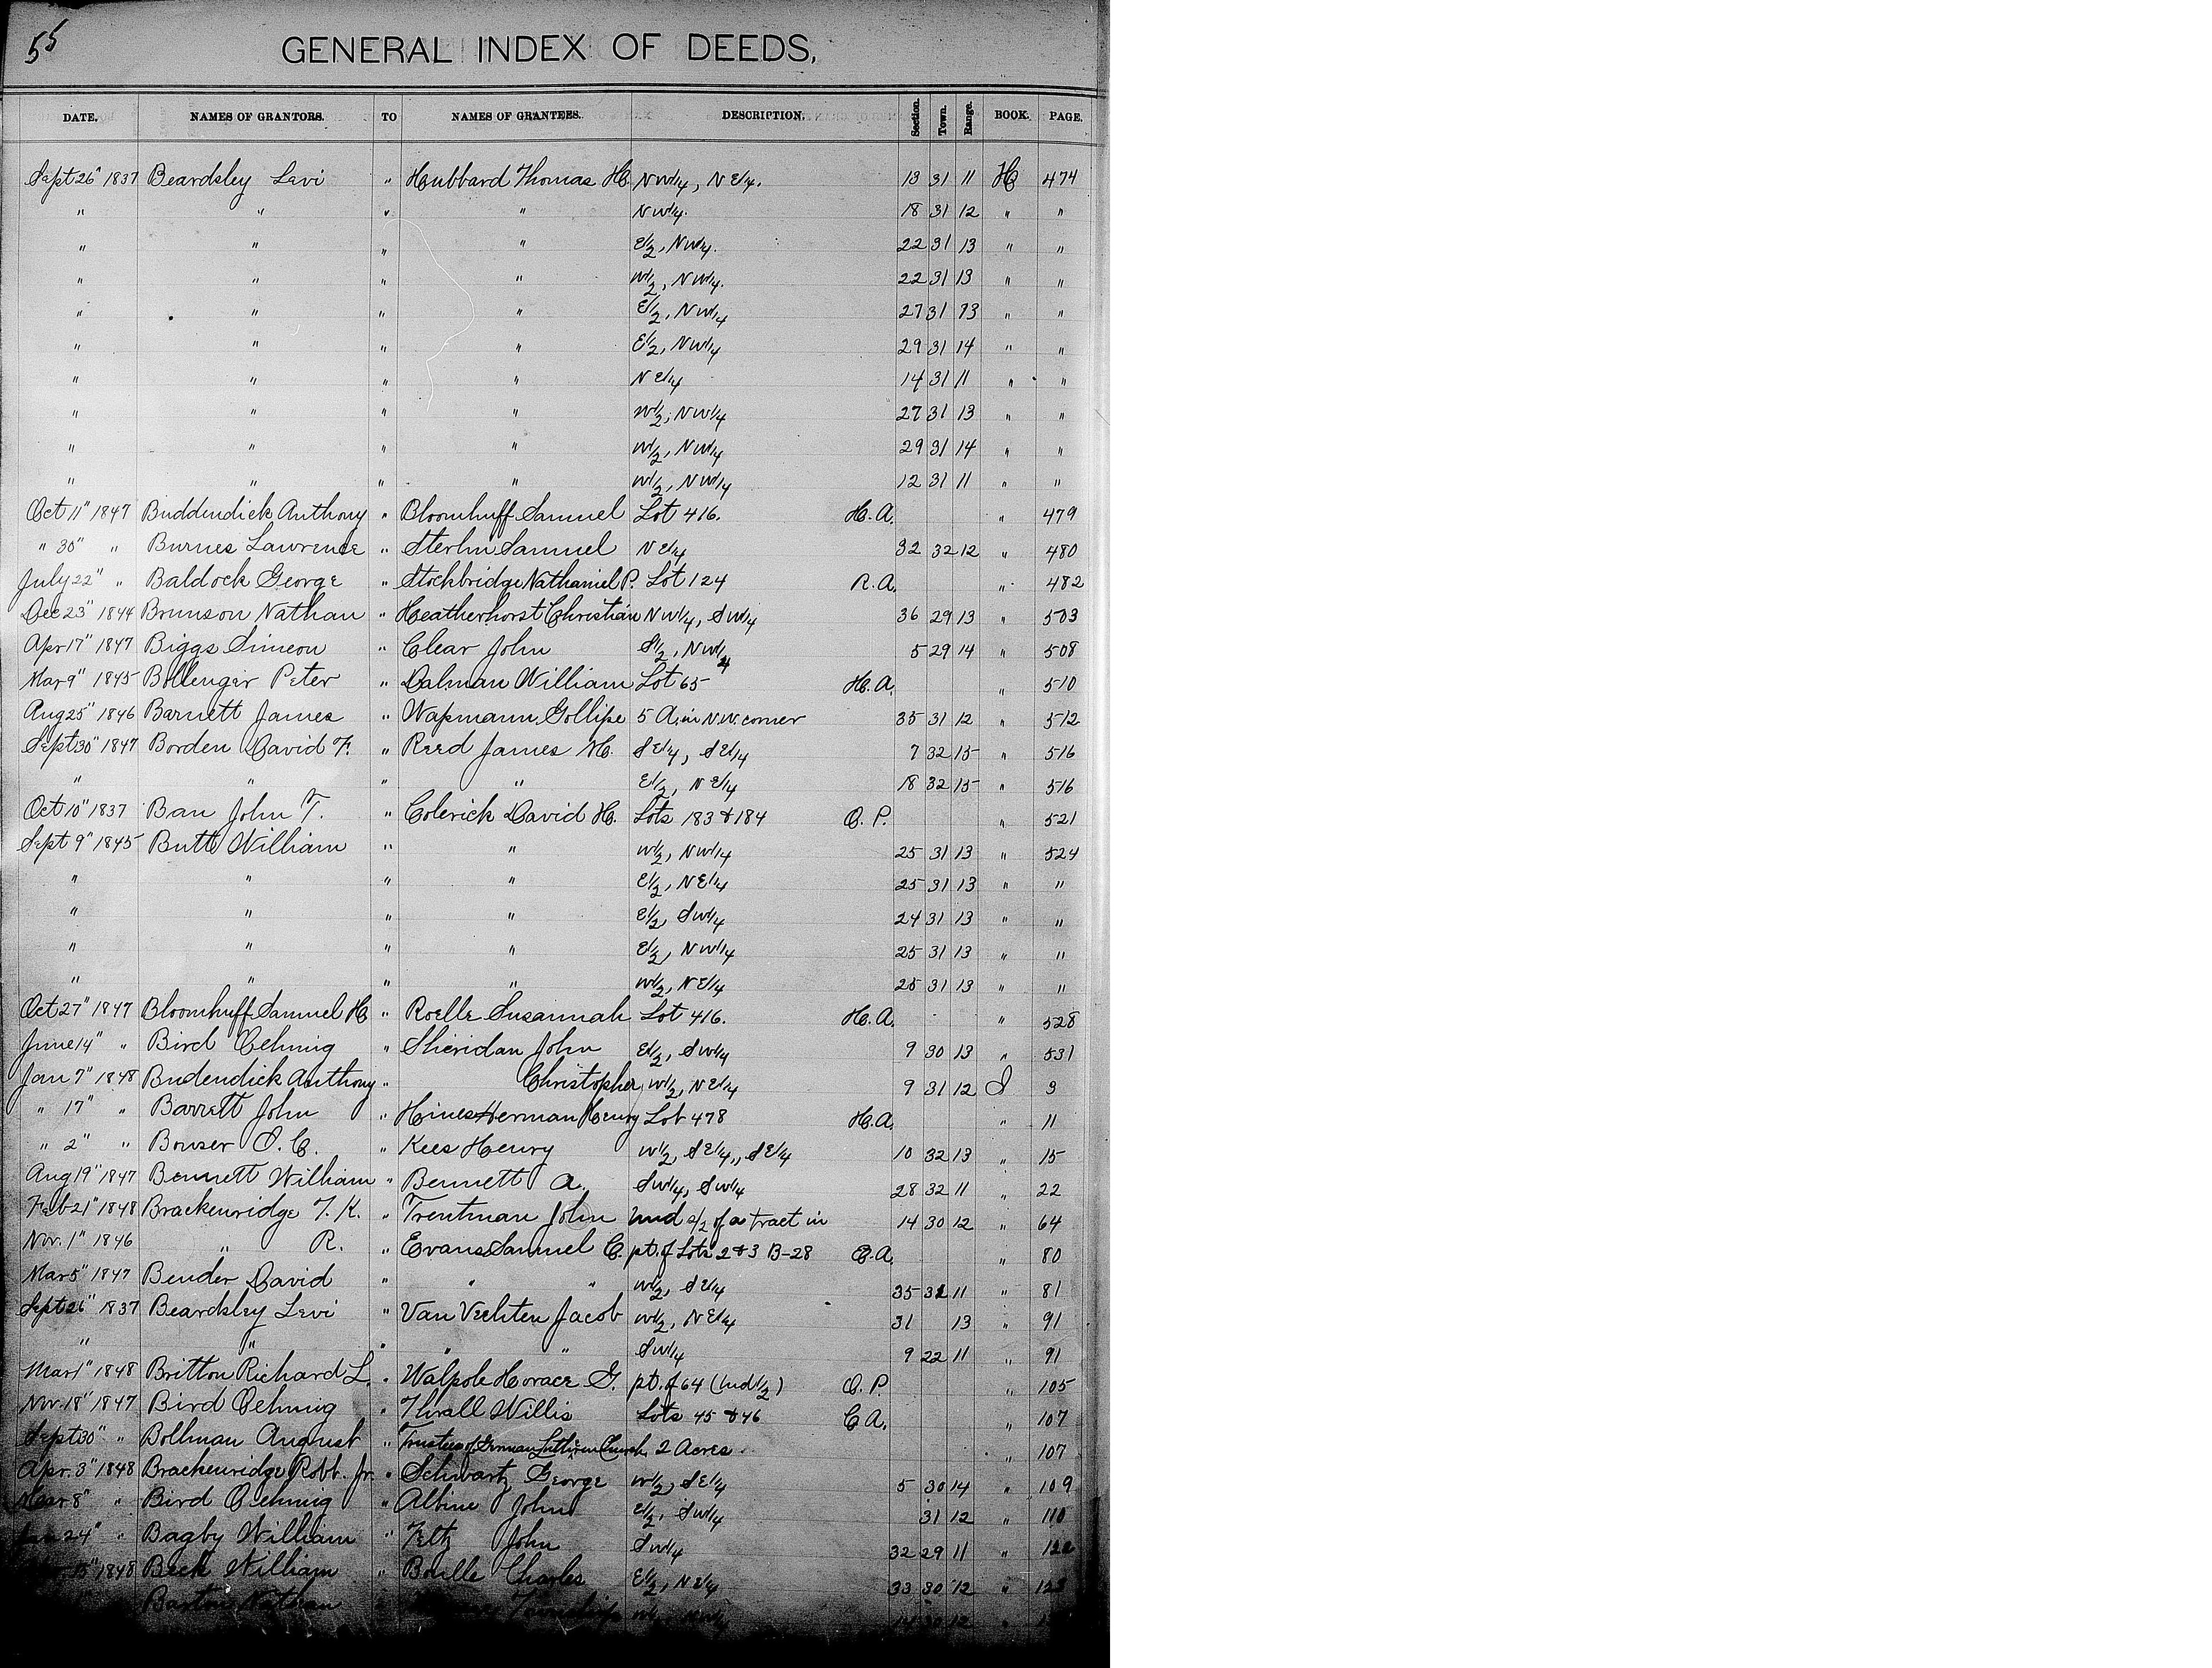 55
GENERAL INDEX OF DEEDS,
DATE. NAMES OF GRANTORS. TO NAMES OF GRANTEES. DESCRIPTION. Section. Town. Range. BOOK. PAGE.
Sept 26" 1837 Beardsley Levi " Hubbard Thomas H. NW1/4, NE1/4. 13 31 11 H 474
" " " " NW1/4. 18 31 12 " "
" " " " E1/2, NW1/4. 22 31 13 " "
" " " " W1/2, NW1/4. 22 31 13 " "
" " " " E1/2, NW1/4 27 31 13 " "
" " " " E1/2, NW1/4 29 31 14 " "
" " " " NE1/4 14 31 11 " "
" " " " W1/2, NW1/4 27 31 13 " "
" " " " W1/2, NW1/4 29 31 14 " "
" " " " W1/2, NW1/4 12 31 11 " "
Oct 11" 1847 Buddendick Anthony " Bloomhuff Samuel Lot 416. H.A. " 479
" 30" " Burnes Lawrence " Sterlin Samuel NE1/4 32 32 12 " 480
July 22" " Baldock George " Stockbridge Nathaniel P. Lot 124 R.A. " 482
Dec 23" 1844 Brunson Nathan " Heatherhorst Christian NW1/4, SW1/4 36 29 13 " 503
Apr 17" 1847 Biggs Simeon " Clear John S1/2, NW1/4 5 29 14 " 508
Mar 9" 1845 Bollenger Peter " Dalman William Lot 65 H.A. " 510
Aug 25" 1846 Barnett James " Wapmann Gollipe 5 A. in N.W. corner 35 31 12 " 512
Sept 30" 1847 Borden David F. " Reed James M. SE1/4, SE1/4 7 32 15 " 516
" " " " E1/2, NE1/4 18 32 15 " 516
Oct 10" 1837 Barr John T. " Colerick David H. Lots 183 & 184 O.P. " 521
Sept 9" 1845 Butt William " " W1/2, NW1/4 25 31 13 " 524
" " " " E1/2, NE1/4 25 31 13 " "
" " " " E1/2, SW1/4 24 31 13 " "
" " " " E1/2, NW1/4 25 31 13 " "
" " " " W1/2, NE1/4 25 31 13 " "
Oct 27" 1847 Bloomhuff Samuel H " Roelle Susannah Lot 416. H.A. " 528
June 14" " Bird Ochmig " Sheridan John E1/2, SW1/4 9 30 13 " 531
Jan 7" 1848 Budendick Anthony " Christopher W1/2, NE1/4 9 31 12 I 3
" 17" " Barrett John " Hines Herman Henry Lot 478 H.A. " 11
" 2" " Bowser I.C. " Kees Henry W1/2, SE1/4, SE1/4 10 32 13 " 15
Aug 19" 1847 Bennett William " Bennett A. SW1/4, SW1/4 28 32 11 " 22
Feb 21" 1848 Brackenridge T.K. " Trentman John Und 2/2 of a tract in 14 30 12 " 64
Nov. 1" 1846 " R. " Evans Samuel C. pt. of Lots 2 & 3 B-28 C.A. " 80
Mar 5" 1847 Bender David " " " W1/2, SE1/4 35 31 11 " 81
Sept 26" 1837 Beardsley Levi " Van Vechten Jacob W1/2, NE1/4 31 13 " 91
" " " " " SW1/4 9 22 11 " 91
Mar 1" 1848 Britton Richard L. " Walpole Horace G. pt. of 64 (Und 1/2) O.P. " 105
Nov. 18" 1847 Bird Ochmig " Thrall Willis Lots 45 & 46 C.A. " 107
Sept 30" " Bollman August " Trustees of German Lutheran Church 2 Acres " 107
Apr. 3" 1848 Brackenridge Robt. Jr. " Schwartz George W1/2, SE1/4 5 30 14 " 109
Mar 8" " Bird Ochmig " Albine John E1/2, SW1/4 31 12 " 110
24" " Bagby William " Feltz John SW1/4 32 29 11 "
15" 1848 Beck William " Boille Charles E1/2, NE1/4 33 30 12 "
Barton Nathan 30 12 "